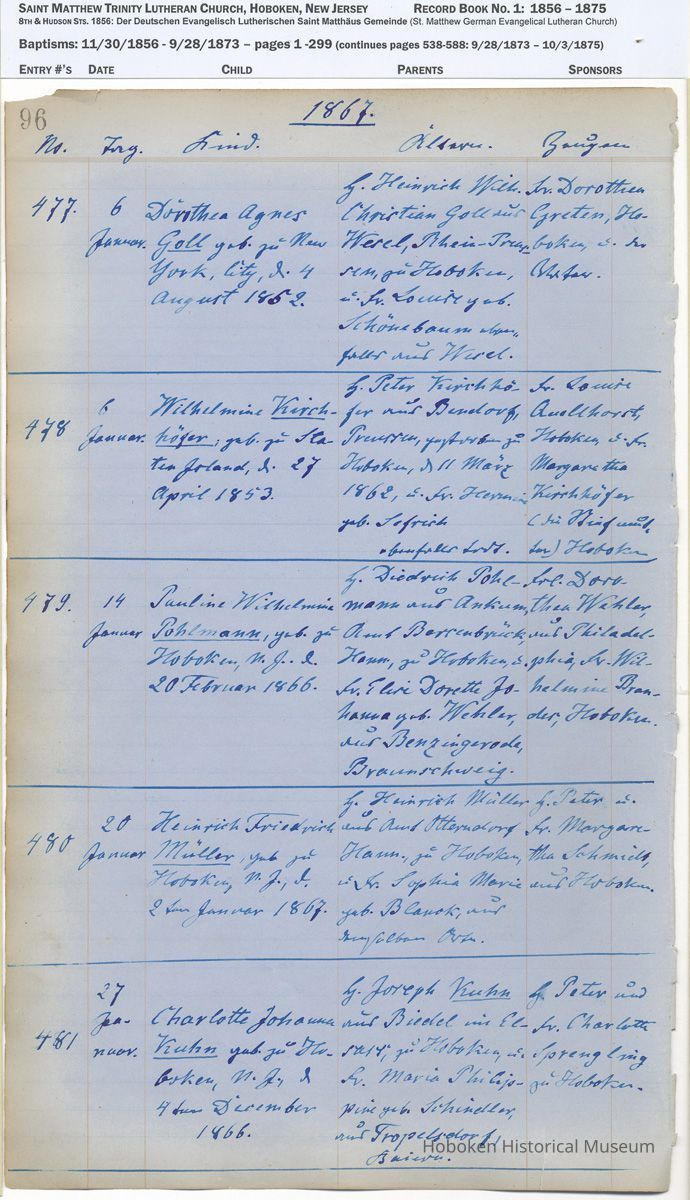 SAINT MATTHEW TRINITY LUTHERAN CHURCH, HOBOKEN, NEW JERSEY RECORD BOOK NO. 1: 1856 – 1875
8TH & HUDSON STS. 1856: Der Deutschen Evangelisch Lutherischen Saint Matthäus Gemeinde (St. Matthew German Evangelical Lutheran Church)
Baptisms: 11/30/1856 - 9/28/1873 – pages 1 -299 (continues pages 538-588: 9/28/1873 – 10/3/1875)
ENTRY #'S DATE CHILD PARENTS SPONSORS
96
1867.
No. Tag. Kind. Ältern. Zeugen
477.
6
Januar.
Dorothea Agnes
Goll geb. zu New
York, City, d. 4
August 1852.
H. Heinrich Wilh.
Christian Goll aus
Wesel, Rhein-Preus-
sen, zu Hoboken,
u. Fr. Louise geb.
Schönebaum eben-
falls aus Wesel.
Fr. Dorothea
Greten, Ho-
boken, u. der
Vater.
478
6
Januar.
Wilhelmine Kirch-
höfer, geb. zu Sta-
ten Island, d. 27
April 1853.
H. Peter Kirchhö-
fer aus Bendorf,
Preussen, gestorben zu
Hoboken, d 11 März
1862, u. Fr.
geb. Sefrich
ebenfalls todt.
Fr. Louise
Hoboken, u. Fr.
Margaretha
Kirchhöfer
(die Stiefmut-
ter) Hoboken
479.
14
Januar
Pauline Wilhelmine
Pohlmann, geb. zu
Hoboken, N. J. d.
20 Februar 1866.
H. Diedrich Pohl-
mann aus Ankum,
Amt Bersenbrück,
Hann., zu Hoboken, u.
Fr. Elise Dorette Jo-
hanna geb. Wehler,
aus Benzingerode,
Braunschweig.
Frl. Doro-
thea Wehler,
aus Philadel-
phia, Fr. Wil-
helmine Bran-
des, Hoboken.
480
20
Januar
Heinrich Friedrich
Müller, geb zu
Hoboken, N. J., d.
2ten Januar 1867.
H. Heinrich Müller
aus Amt Otterndorf
Hann., zu Hoboken,
u. Fr. Sophia Marie
geb. Blanck, aus
demselben Orte.
H. Peter u.
Fr. Margare-
tha Schmidt,
aus Hoboken.
481
27
Ja-
nuar.
Charlotte Johanna
Kuhn geb. zu Ho-
boken, N. J., d
4ten December
1866.
H. Joseph Kuhn
aus Biedel im El-
sass, zu Hoboken, u.
Fr. Maria Philip-
pine geb. Schindler,
aus Tropelsdorf,
Baiern.
H. Peter und
Fr. Charlotte
Sprengling
zu Hoboken.
Hoboken Historical Museum